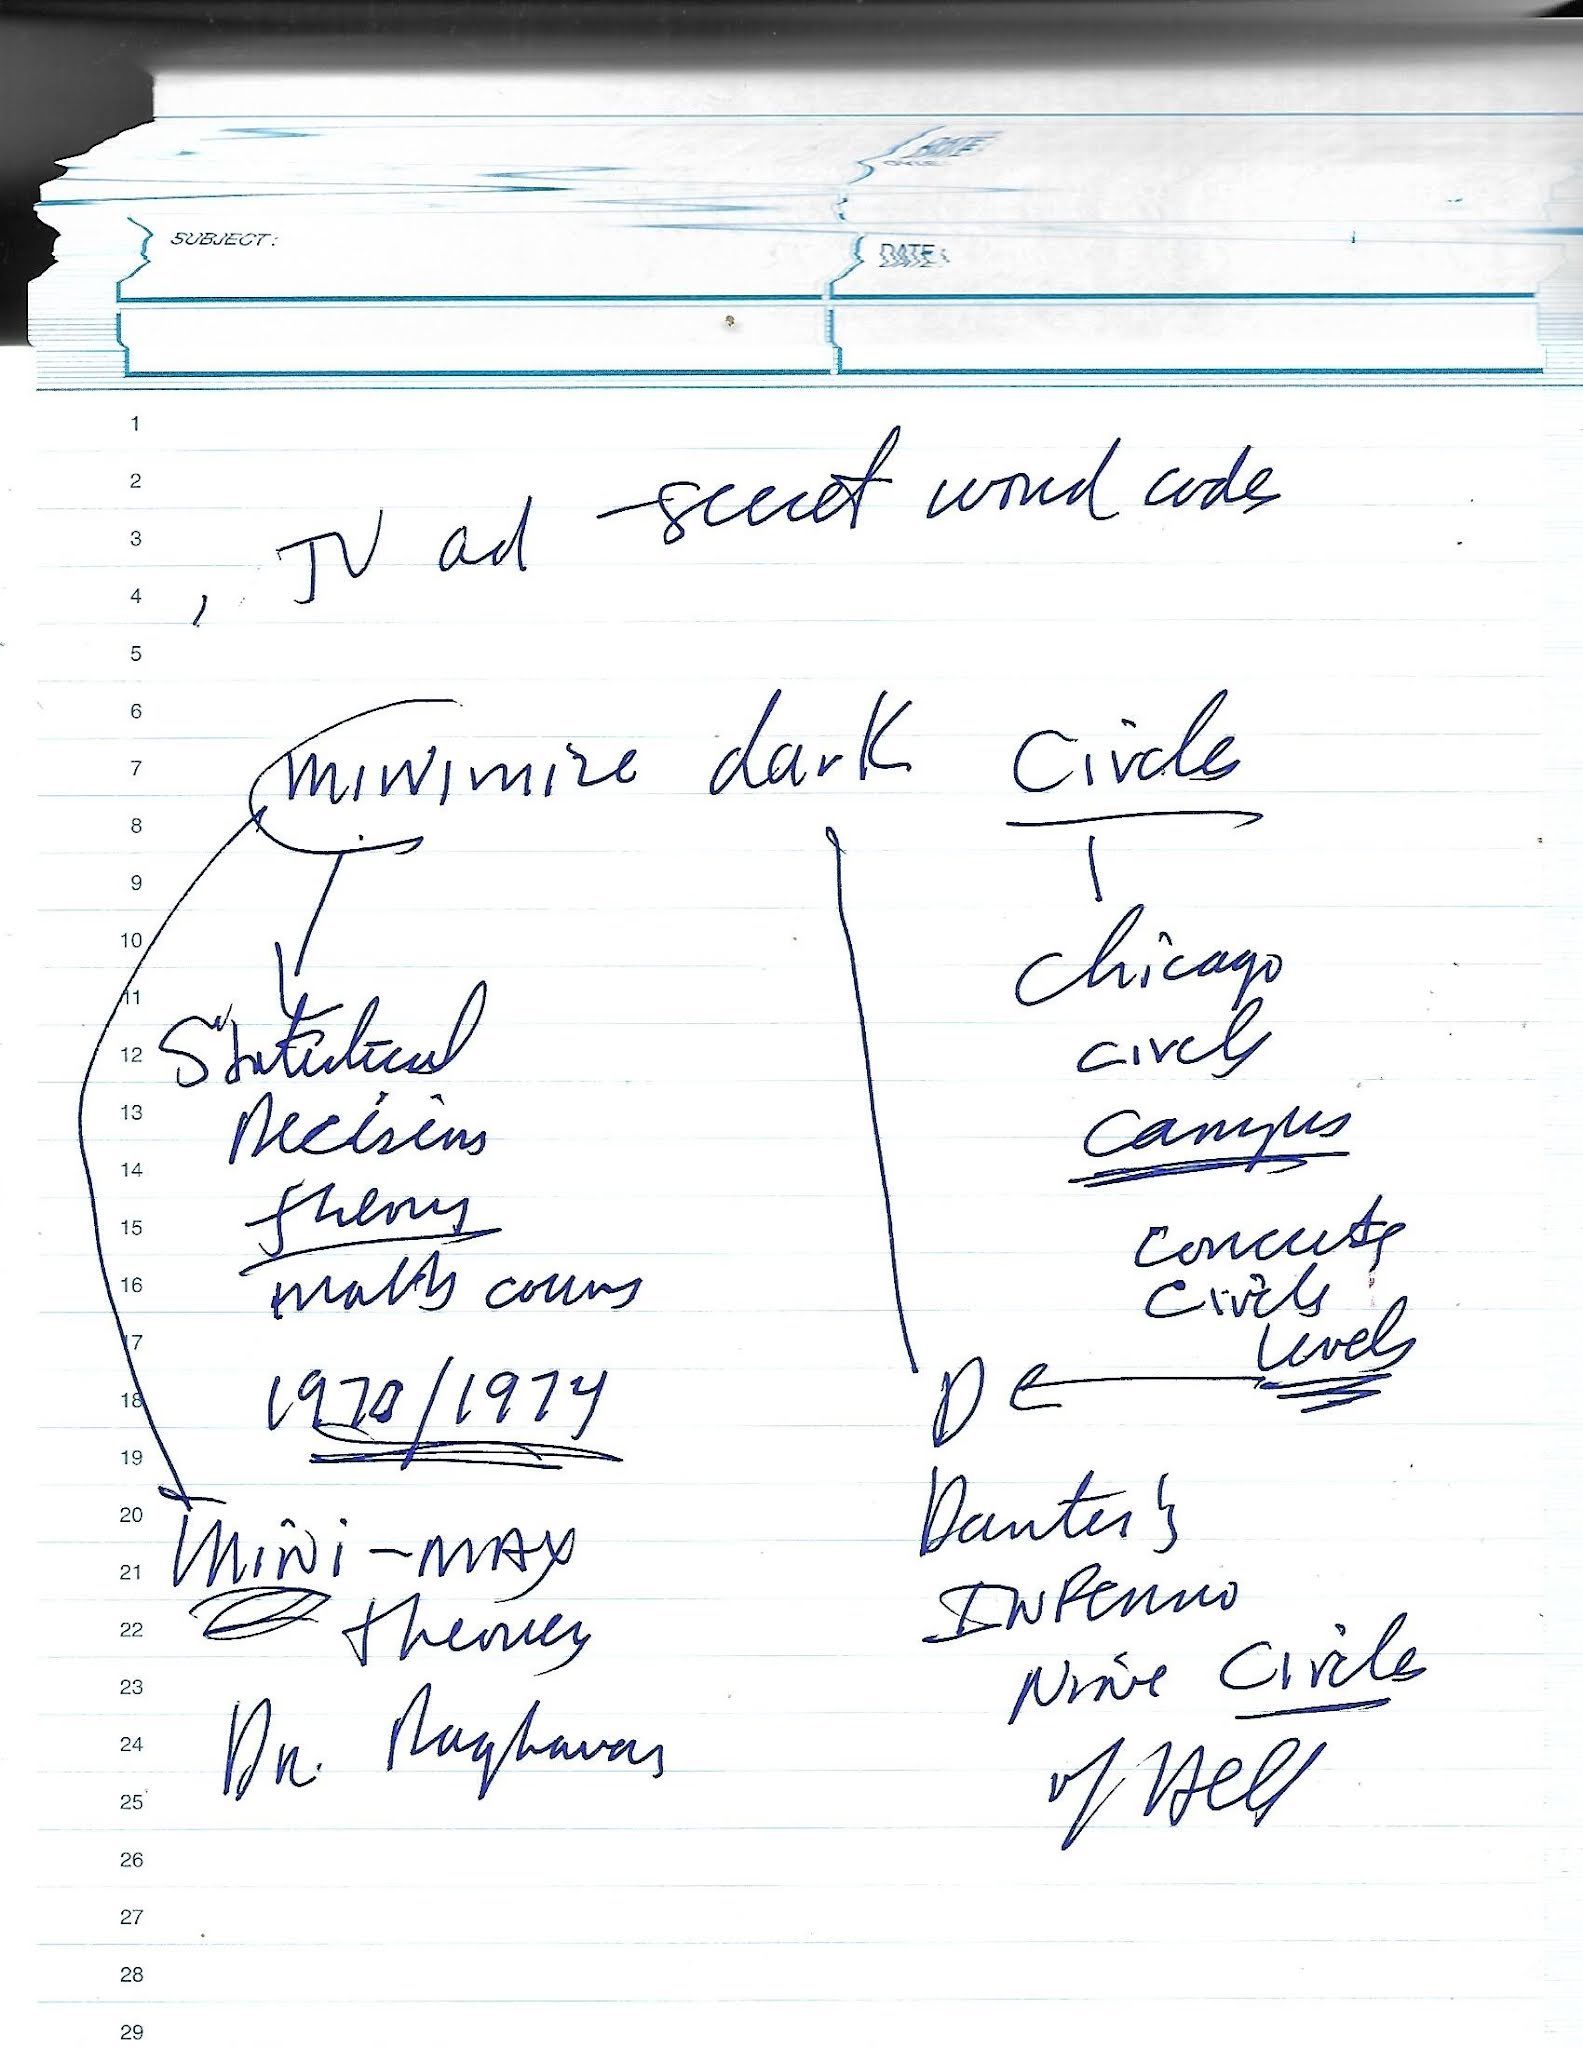 SUBJECT:
DATE:
1
2
3
4
5
6
7
8
9
10
11
12
13
14
15
16
17
18
19
20
21
22
23
24
25
26
27
28
29
TV ad - secret word codes
minimize dark Circles
Statistical
Decisions
theory
math course
1970/1974
MINI-MAX
theory
Dr. Raghavan
Chicago
circle
campus
concrete
circle
levels
D
Dante's
INFERNO
Nine Circles
of Hell